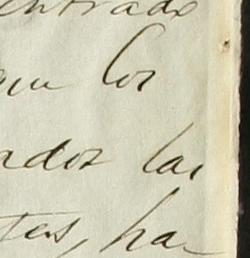 entrado
que los
ados las
tes, ha-